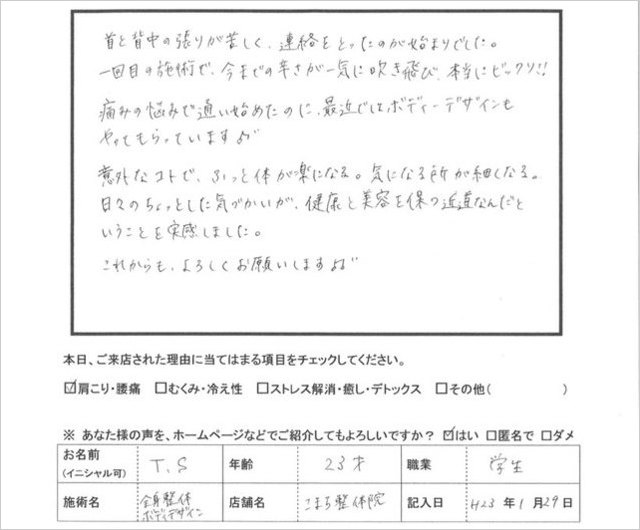 首と背中の張りが苦しく、連絡をとったのが始まりでした。
一回目の施術で、今までの辛さが一気に吹き飛び、本当にビックリ!!
痛みの悩みで通い始めたのに、最近ではボディーデザインも
やってもらっています♪
意外なコトで、ふっと体が楽になる。気になる所が細くなる。
日々のちょっとした気づかいが、健康と美容を保つ近道なんだと
いうことを実感しました。
これからも、よろしくお願いします♪
本日、ご来店された理由に当てはまる項目をチェックしてください。
☑肩こり・腰痛 □むくみ・冷え性 □ストレス解消・癒し・デトックス □その他( )
※ あなた様の声を、ホームページなどでご紹介してもよろしいですか? ☑はい □匿名で □ダメ
お名前 (イニシャル可) T.S 年齢 23才 職業 学生
施術名 全身整体 ボディデザイン 店舗名 こまち整体院 記入日 H23 年 1 月 29 日